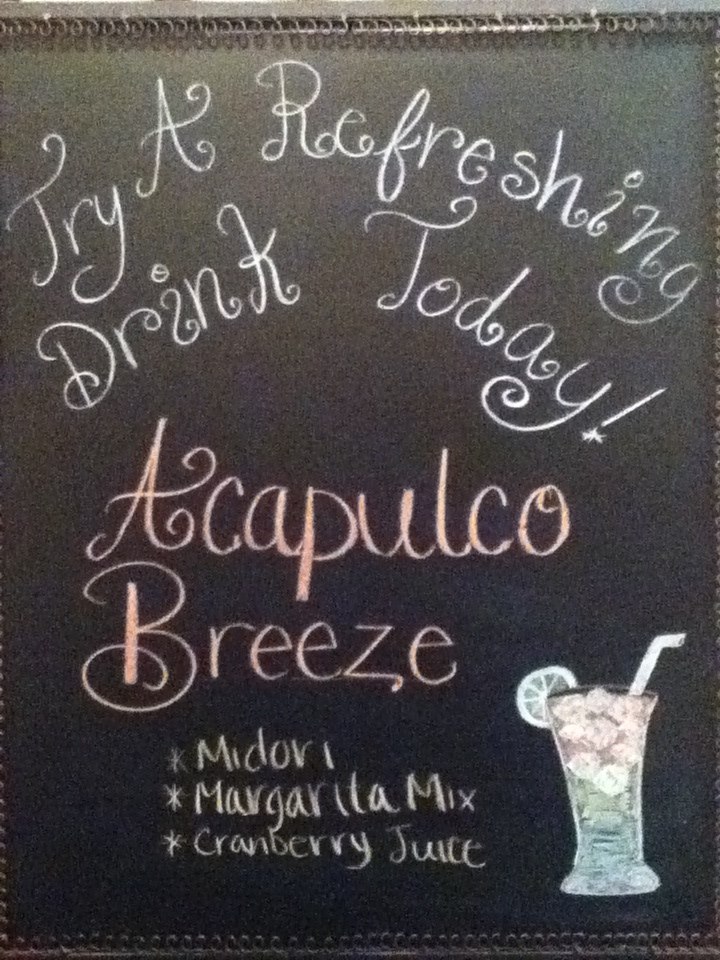 Try A Refreshing
Drink Today!
Acapulco
Breeze
* Midori
* Margarita Mix
* Cranberry Juice